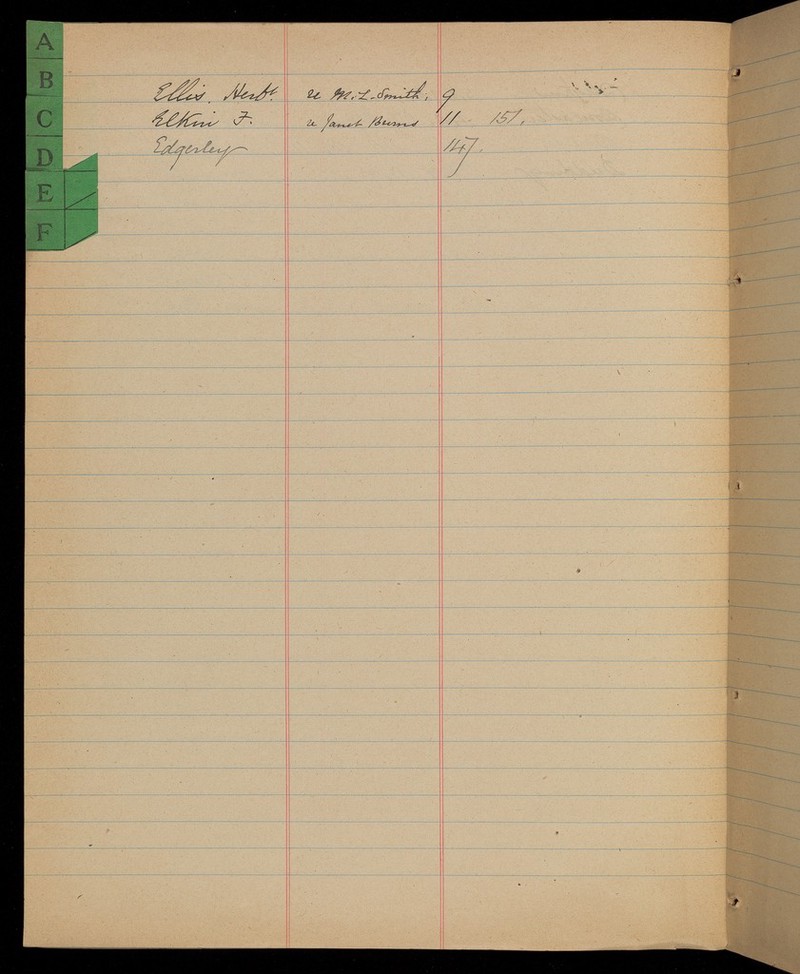 A
B
C
D
E
F
Ellis. Herbt. re M. L. Smith. 9
Elkin F. re Janet Burns 11. 151.
Edgerley 147.